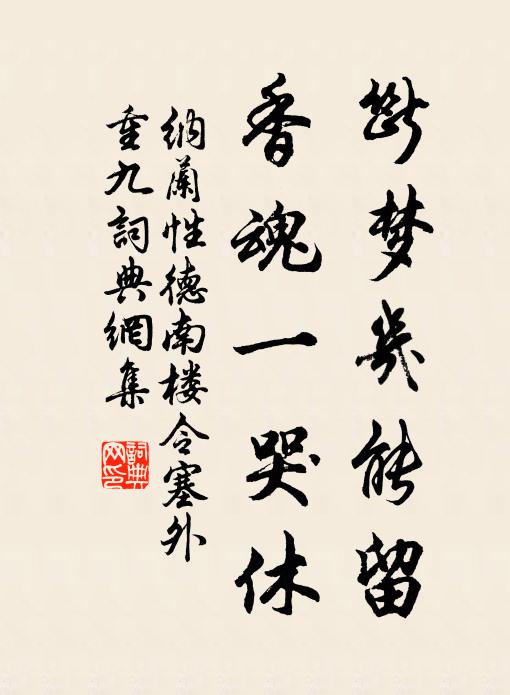 断梦几能留
香魂一哭休
纳兰性德南楼令塞外
重九詞典網集
詞典网印